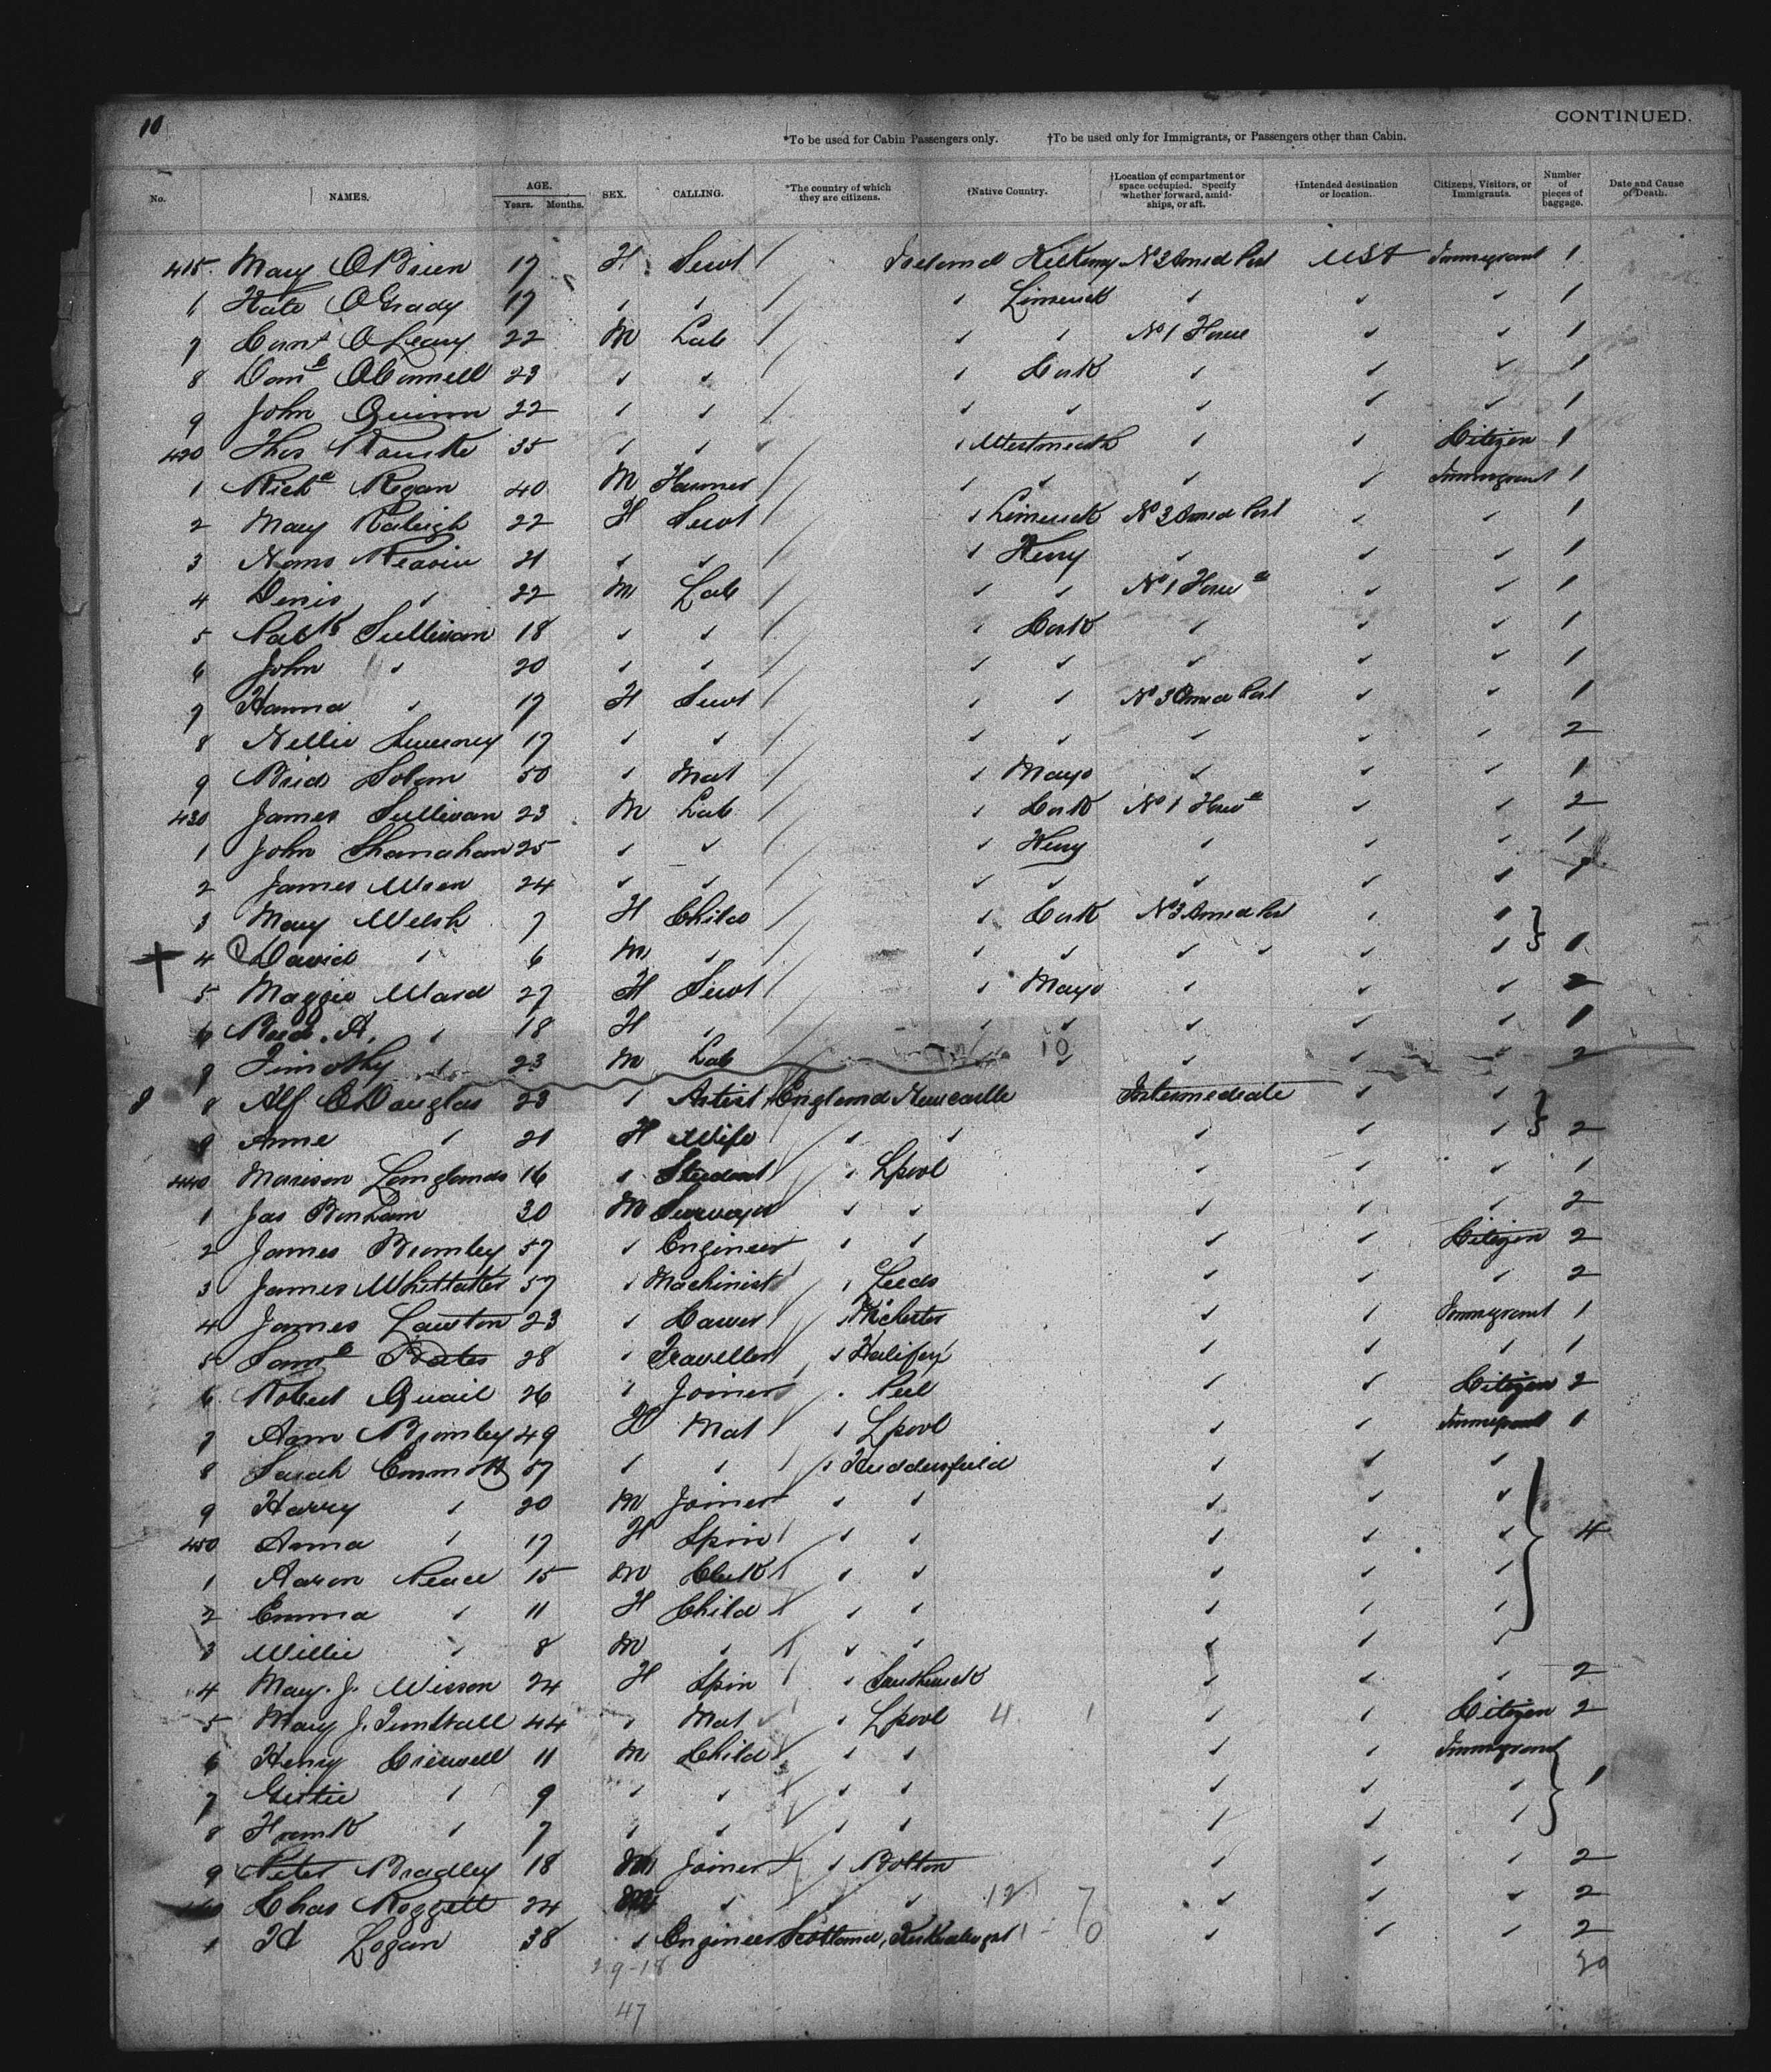 10
CONTINUED.
*To be used for Cabin Passengers only. †To be used only for Immigrants, or Passengers other than Cabin.
No. NAMES. AGE. Years. Months. SEX. CALLING. *The country of which they are citizens. †Native Country. †Location of compartment or space occupied. Specify whether forward, amidships, or aft. †Intended destination or location. Citizens, Visitors, or Immigrants. Number of pieces of baggage. Date and Cause of Death.
415 Mary OBrien 17 F Servt Ireland Kilkenny No 3 Amid Port USA Immigrant 1
6 Kate OGrady 17 " " " Limerick " " " 1
7 OLeary 22 M Lab " " No 1 " " 1
8 Danl OConnell 23 " " " Cork " " " 1
9 John Quinn 22 " " " " " " " 1
420 Thos 35 " " " Westmeath " " Citizen 1
1 Richd Regan 40 M Farmer " " " " Immigrant 1
2 Mary Raleigh 22 F Servt " Limerick No 3 Amid Port " " 1
3 21 " " " Kerry " " " 1
4 Denis " 22 M Lab " " No 1 " " 1
5 Patk Sullivan 18 " " " Cork " " " 1
6 John " 20 " " " " " " " 1
7 Hanna " 17 F Servt " " No 3 Amid Port " " 1
8 Nellie Sweeney 17 " " " " " " " 2
9 Brid Solan 50 " Mat " Mayo " " " 1
430 James Sullivan 23 M Lab " Cork No 1 " " 2
1 John Shanahan 25 " " " Kerry " " " 1
2 James 24 " " " " " " "
3 Mary Welsh 7 F Child " Cork No 3 Amid Port " "
4 David " 6 M " " " " " " 1
5 Maggie Ward 27 F Servt " Mayo " " " 2
6 Brid. A. " 18 F " " " " " " 1
7 Timothy " 23 M Lab 10 " " " " 2
8 Alf C Douglas 23 " Artist England Newcastle Intermediate " "
9 Annie " 21 F Wife " " " " " 2
440 Marison Langlands 16 " Student " Lpool " " " 1
1 Jas Bonham 30 M Surveyor " " " " " 2
2 James Bromley 57 " Engineer " " " " Citizen 2
3 James Whittaker 57 " Machinist " Leeds " " " 2
4 James Lawton 23 " Carver " Mchester " " Immigrant 1
5 Saml Bates 28 " Traveller " Halifax " " " 1
6 Robert Quail 26 " Joiner " Peel " " Citizen 2
7 Ann Bromley 49 F Mat " Lpool " " Immigrant 1
8 Sarah Emmott 57 " " " Huddersfield " " "
9 Harry " 20 M Joiner " " " " "
450 Anna " 17 F Spin " " " " " 4
1 Aaron Peace 15 M Clerk " " " " "
2 Emma " 11 F Child " " " " "
3 Willie " 8 M " " " " " "
4 Mary. J. Wisson 24 F Spin " " " " 2
5 Mary J. Tunstall 44 " Mat " Lpool 4 1 " " Citizen 2
6 Henry 11 M Child " " " " Immigrant
7 Gertie " 9 " " " " " " " 1
8 Frank " 7 " " " " " " "
9 Peter Bradley 18 M Joiner " Bolton " " " 2
460 Chas Roggett 24 M " " " 12 7 " " " 2
1 H Logan 38 " Engineer Scotland, 0 " " " 2
29-18
47